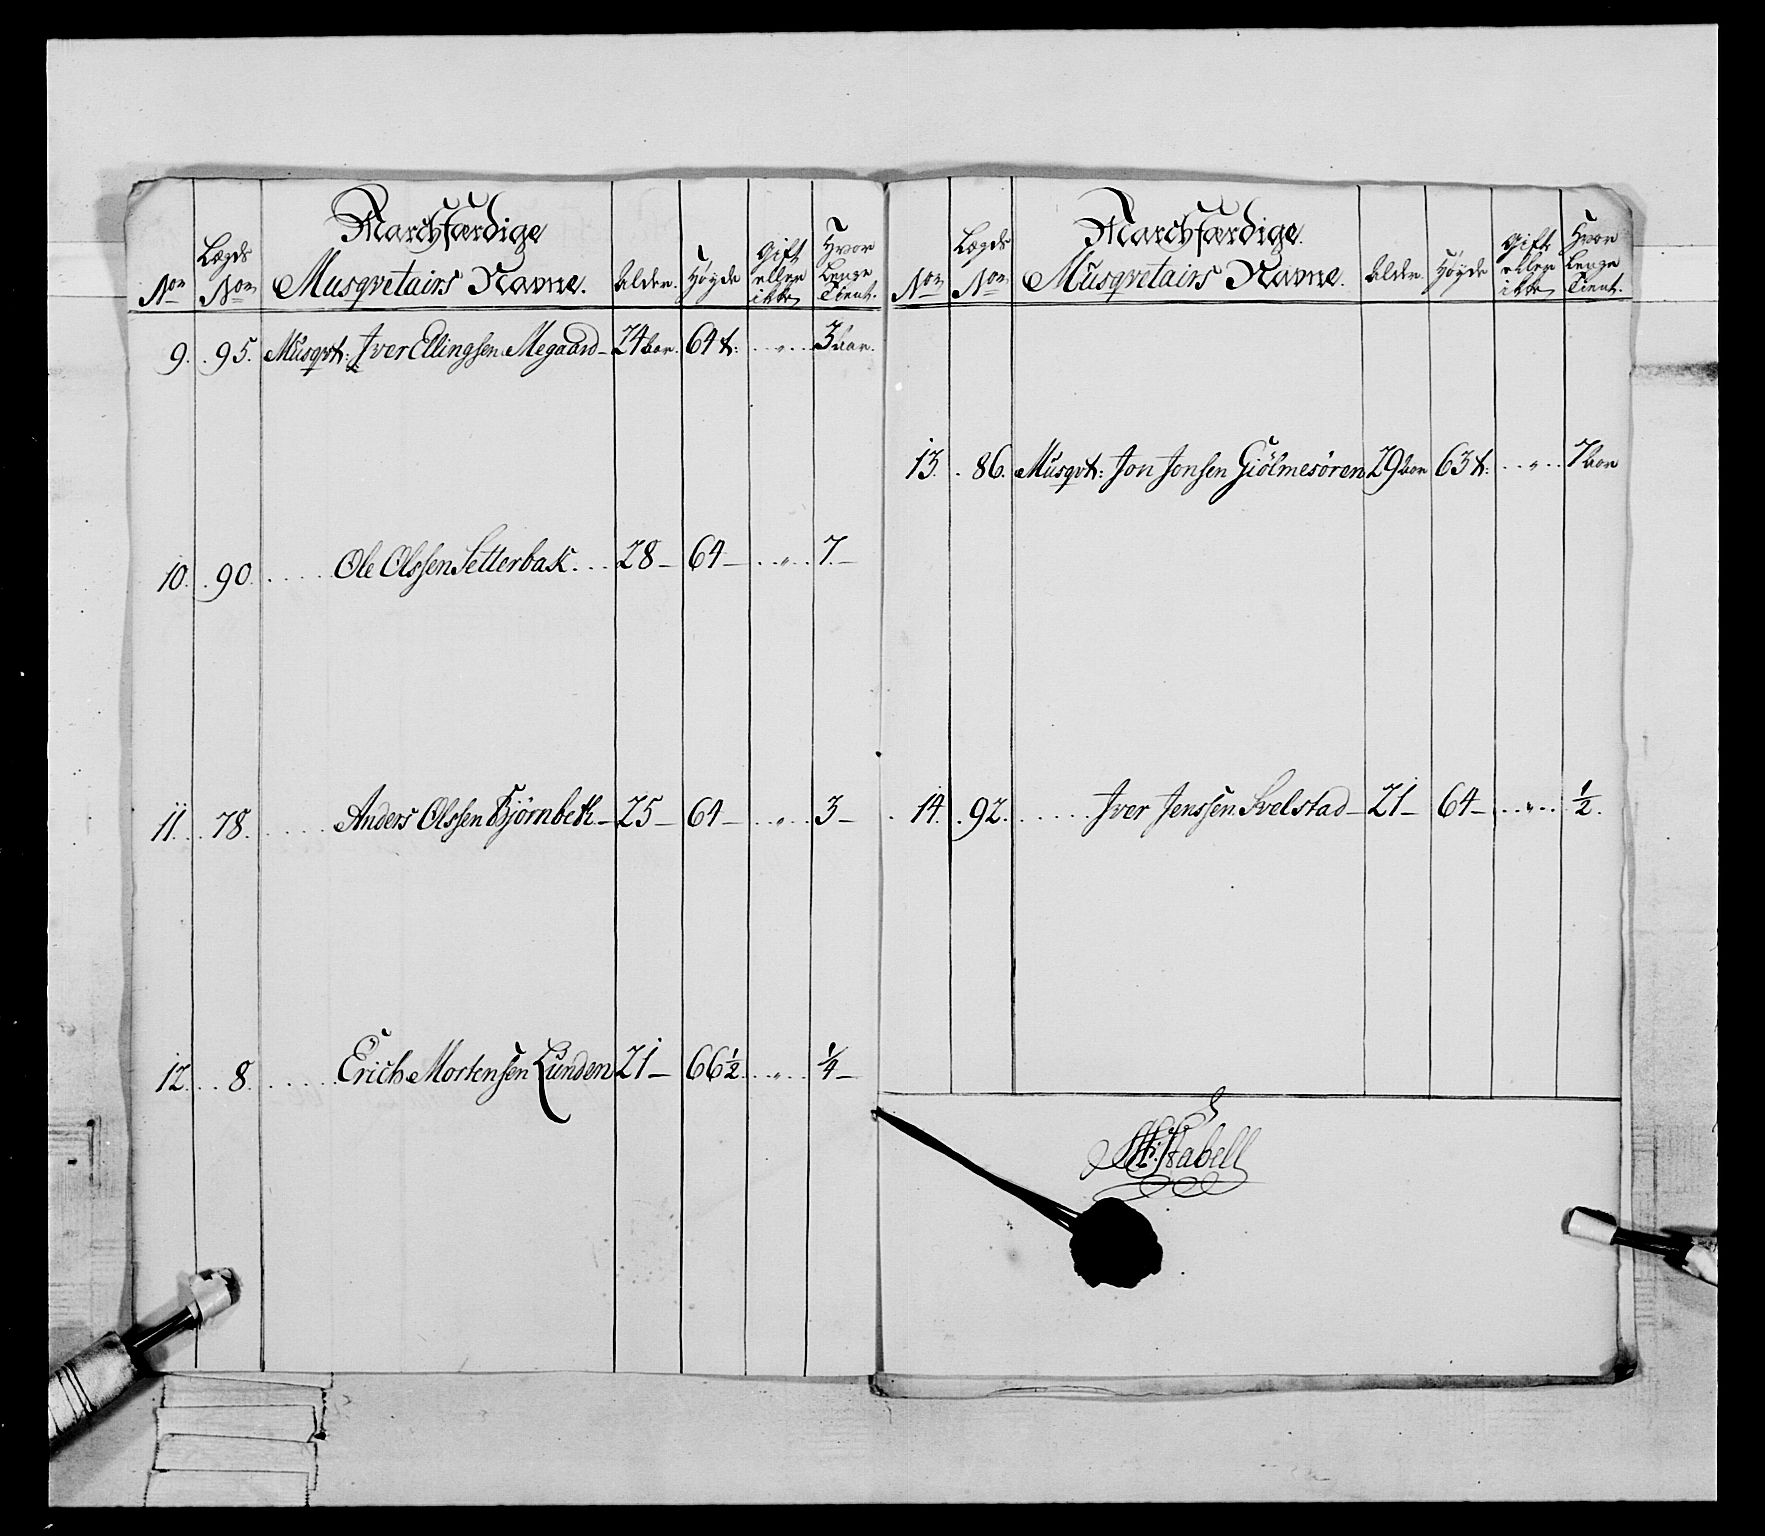 Nor Lægds Nor Marchfærdige Musqvetairs Navne. Alder. Høyde Gift eller ikke Hvor Lenge Tient.
9. 95. Musqvt: Iver Ellingsen Megaard 24 aar. 64 t: „ 3 aar.
10. 90. Ole Olssen Setterbak 28 64 „ 7.
11. 78. Anders Olssen Björnbek 25 64 „ 3
12. 8. Erich Mortensen Lunden 21 66 1/2 „ 1/4
Nor Lægds Nor Marchfærdige Musqvetairs Navne. Alder. Høyde Gift eller ikke Hvor Lenge Tient.
13. 86. Musqvt: Jon Jonsen Giölmesören 29 aar 63 t: „ 7 aar
14. 92. Iver Jenssen Svelstad 21 64 „ 1/2.
Stabell